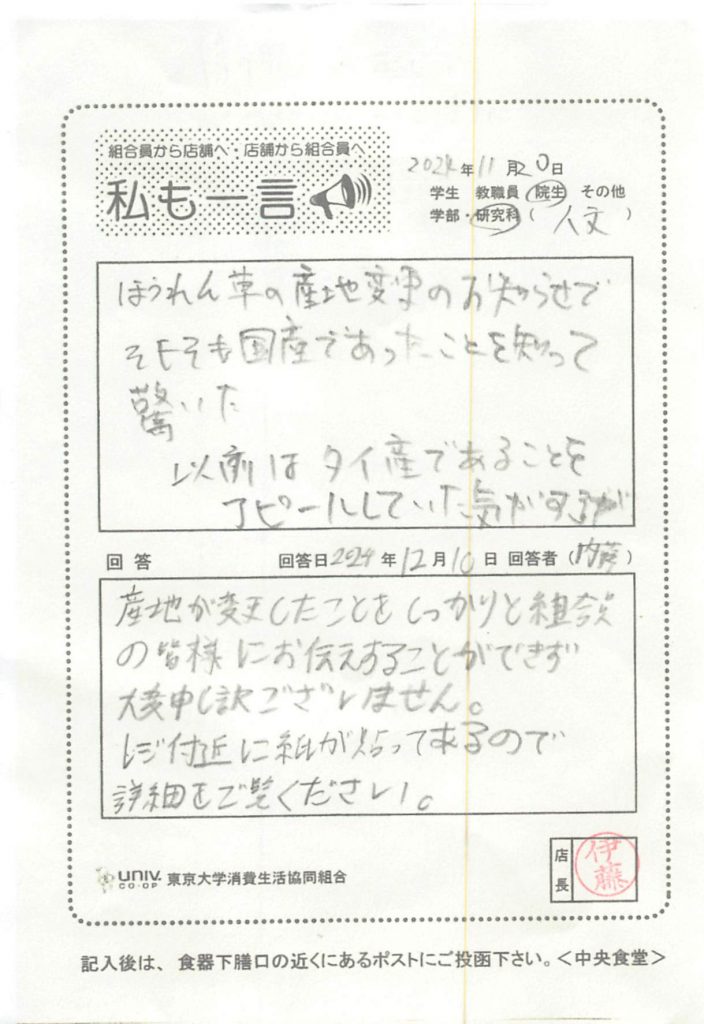 組合員から店舗へ・店舗から組合員へ
私も一言
2024年11月20日
学生 教職員 院生 その他
学部・研究科(人文)
ほうれん草の産地変更のお知らせで
そもそも国産であったことを知って
驚いた
以前はタイ産であることを
アピールしていた気がするが
回答 回答日2024年12月10日 回答者(内藤)
産地が変更したことをしっかりと組合員
の皆様にお伝えすることができず
大変申し訳ございません。
レジ付近に紙が貼ってあるので
詳細をご覧ください。
店長
伊藤
UNIV.
CO-OP
東京大学消費生活協同組合
記入後は、食器下膳口の近くにあるポストにご投函下さい。<中央食堂>